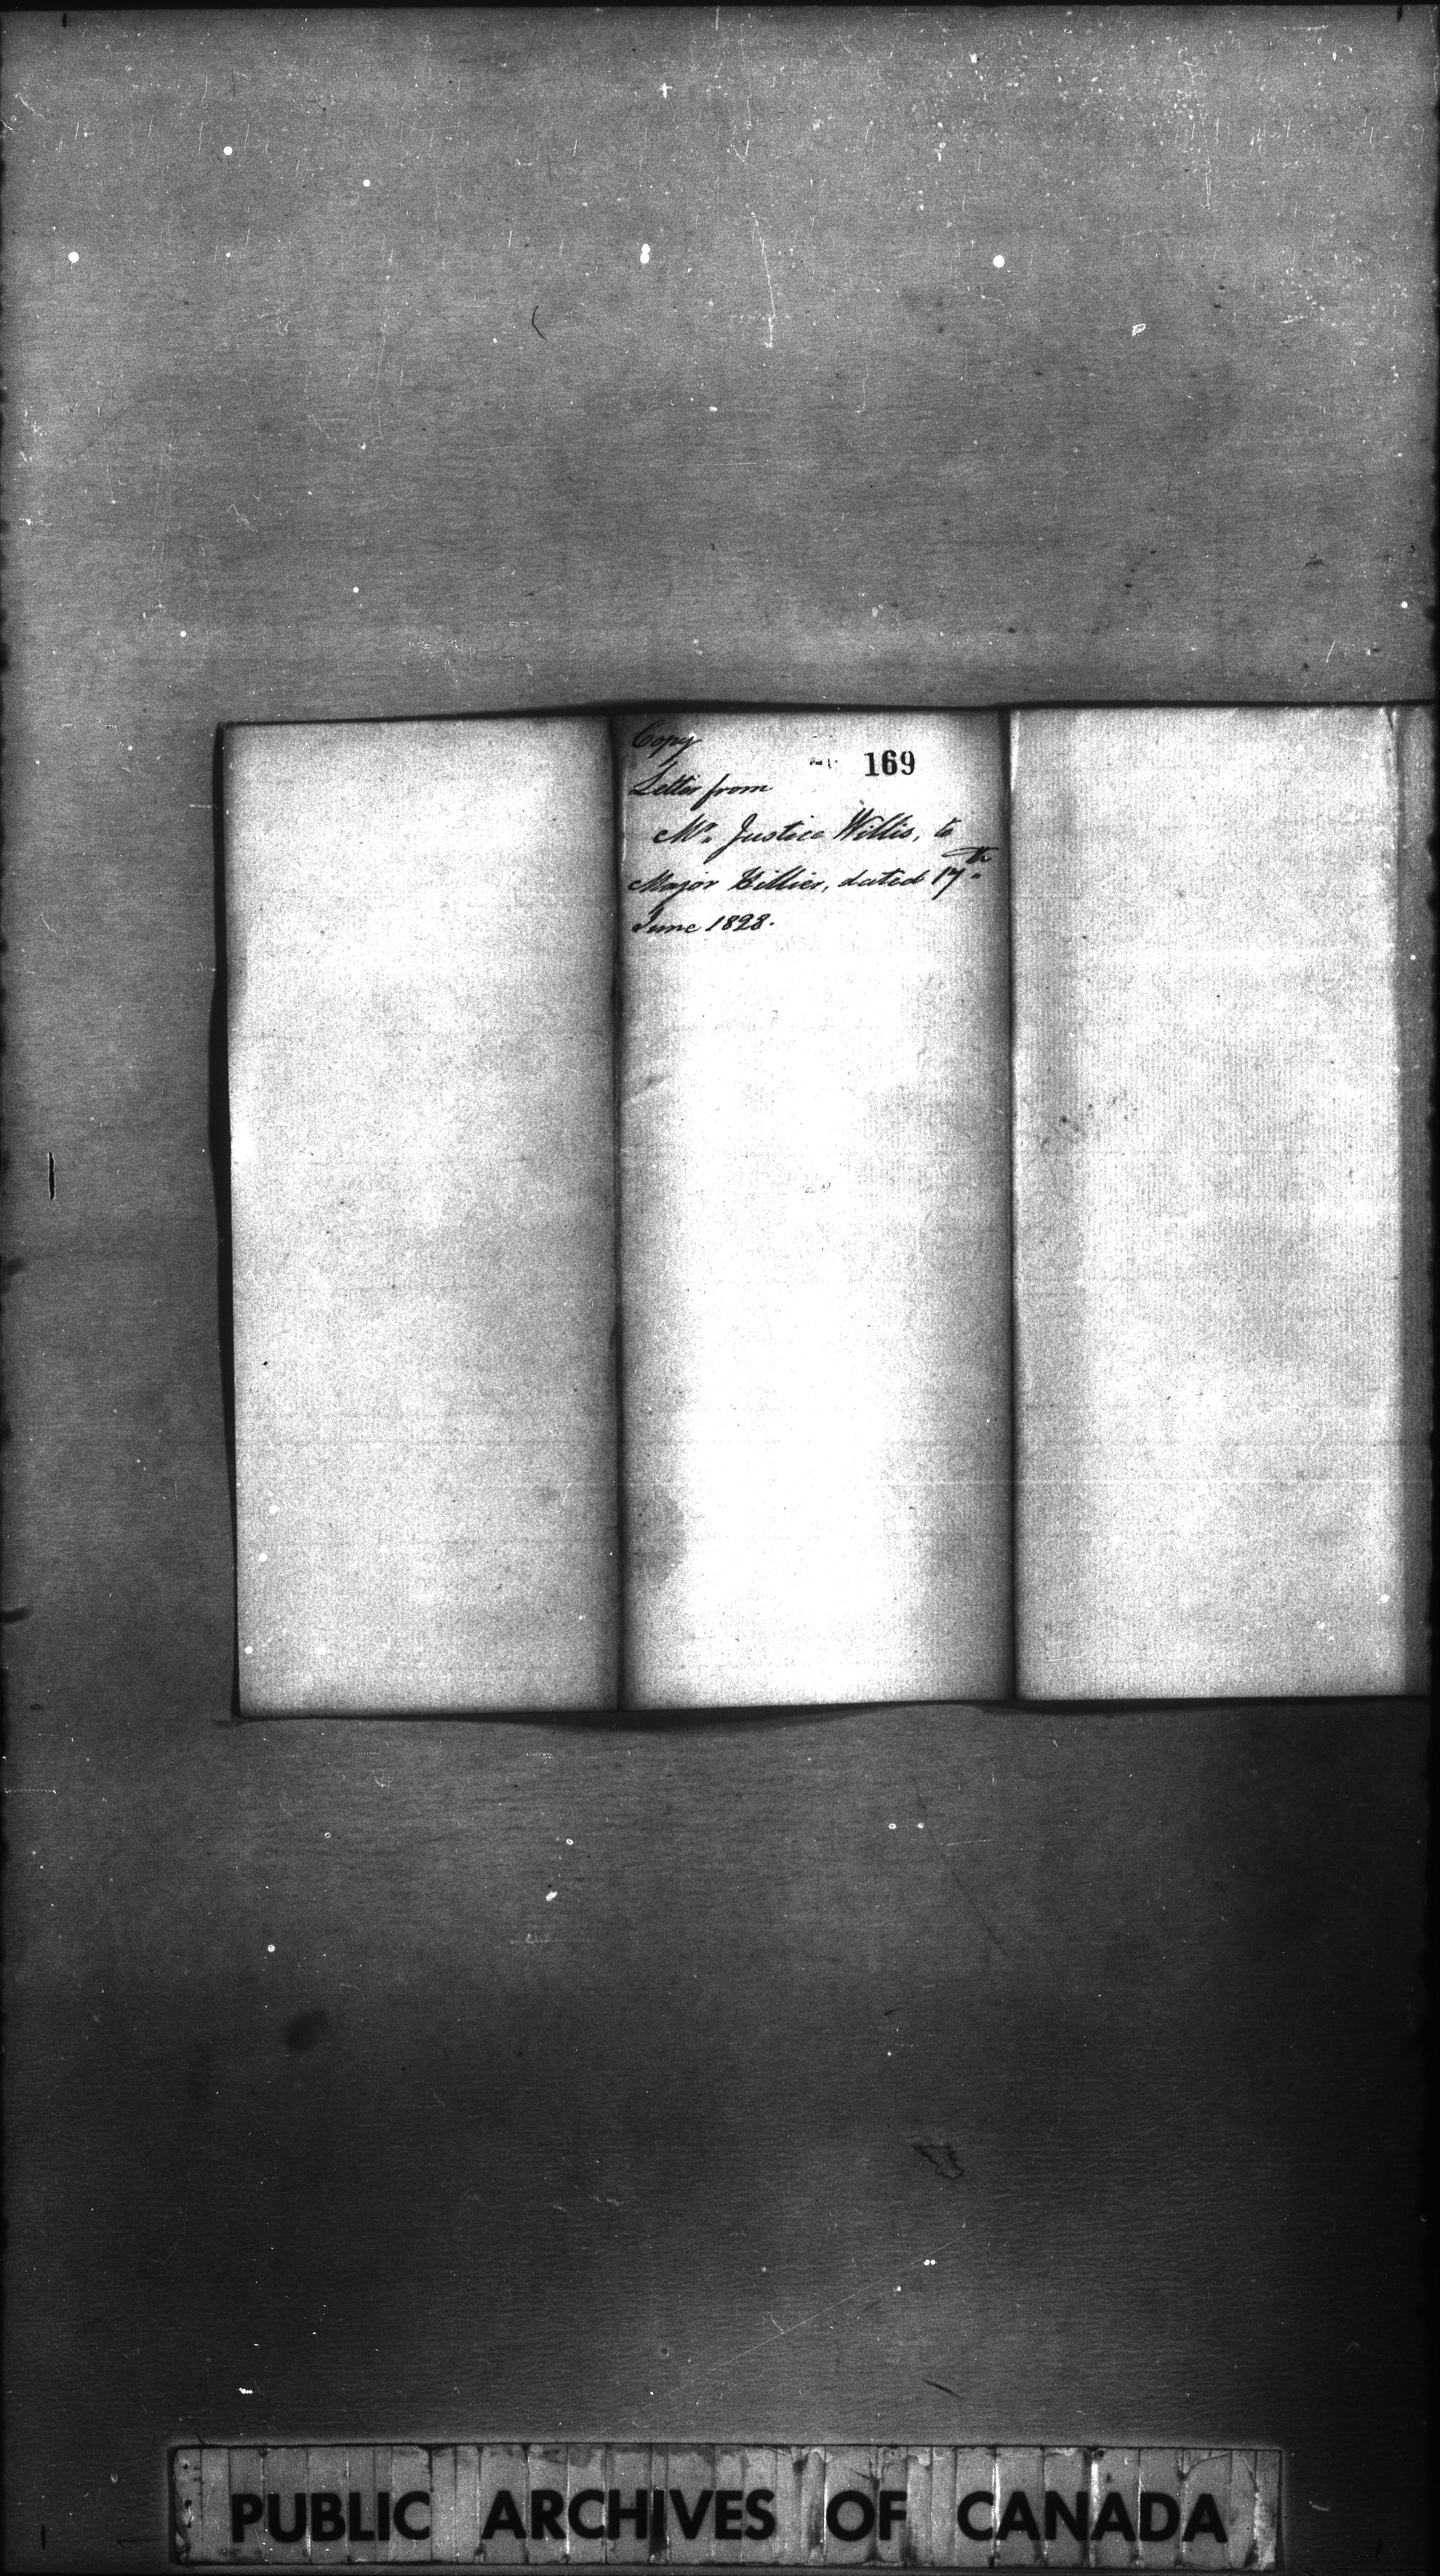 Copy
169
Letter from
Mr. Justice Willis, to
Major Hillier, dated 17th
June 1828.
PUBLIC ARCHIVES OF CANADA